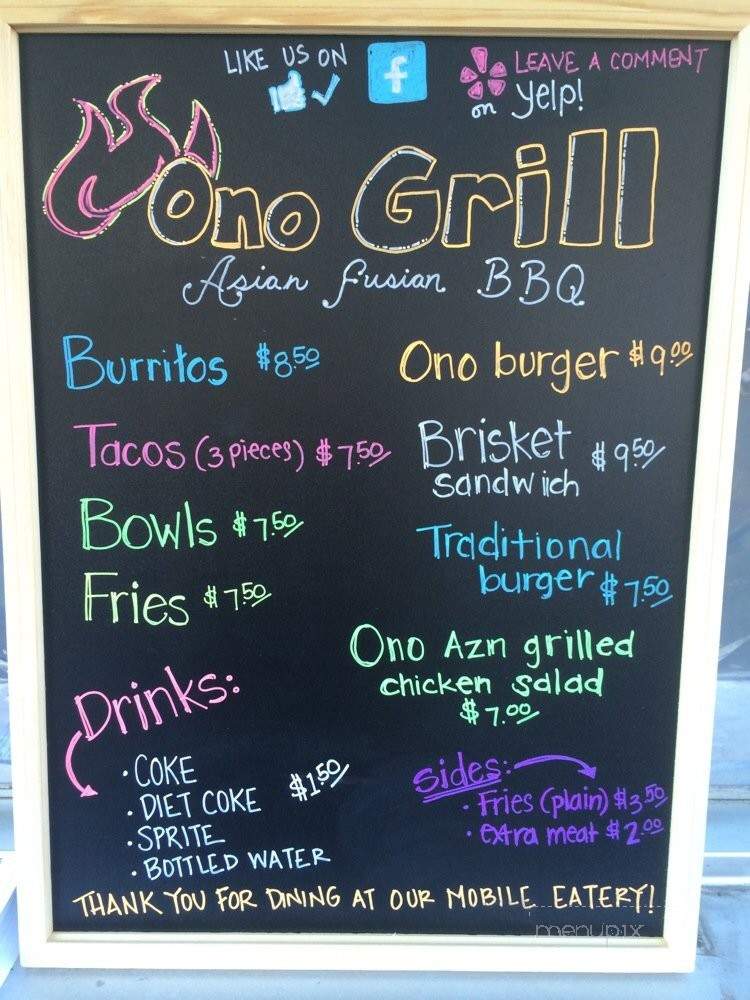 LIKE US ON f
LEAVE A COMMENT
on yelp!
Ono Grill
Asian fusian BBQ
Burritos $8.50
Tacos (3 pieces) $7.50
Bowls $7.50
Fries $7.50
Ono burger $9.00
Brisket $9.50
sandwiich
Traditional
burger $7.50
Ono Azn grilled
chicken salad
$7.00
Drinks:
• COKE
• DIET COKE $1.50
• SPRITE
• BOTTLED WATER
sides:
• Fries (plain) $3.50
• extra meat $2.00
THANK YOU FOR DINING AT OUR MOBILE EATERY!
menupix